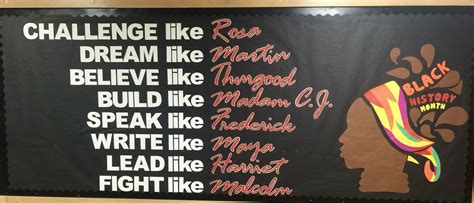 CHALLENGE like Rosa
DREAM like Martin
BELIEVE like Thurgood
BUILD like Madam C.J.
SPEAK like Frederick
WRITE like Maya
LEAD like Harriet
FIGHT like Malcolm
BLACK
HISTORY
MONTH